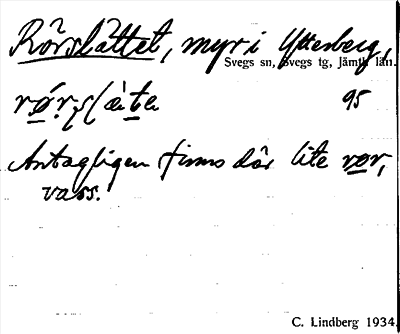 Rörslåttet, myr i Ytterberg,
Svegs sn, Svegs tg, Jämtl. län.
95
Antagligen finns där lite rør,
vass.
C. Lindberg 1934